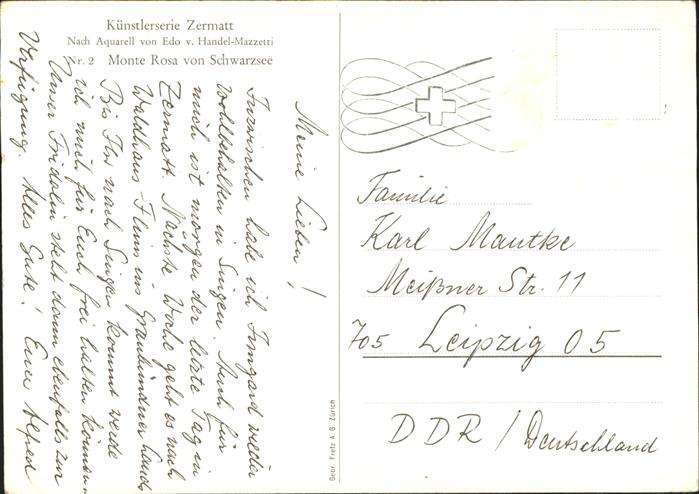 Künstlerserie Zermatt
Nach Aquarell von Edo v. Handel-Mazzetti
Nr. 2 Monte Rosa von Schwarzsee
Meine Lieben!
Inzwischen habe ich Irmgard wieder
wohlbehalten in Singen. Auch für
mich ist morgen der letzte Tag in
Zermatt. Nächste Woche geht es nach
Waldhaus Flims im Graubündner Lande.
Bis Ihr nach Singen kommt werde
ich mich für Euch frei halten können.
Unser Fridolin steht dann ebenfalls zur
Verfügung. Alles Gute! Euer Alfred
Familie
Karl Mautke
Meißner Str. 11
705 Leipzig O 5
DDR / Deutschland
Gebr. Fretz A.G. Zürich